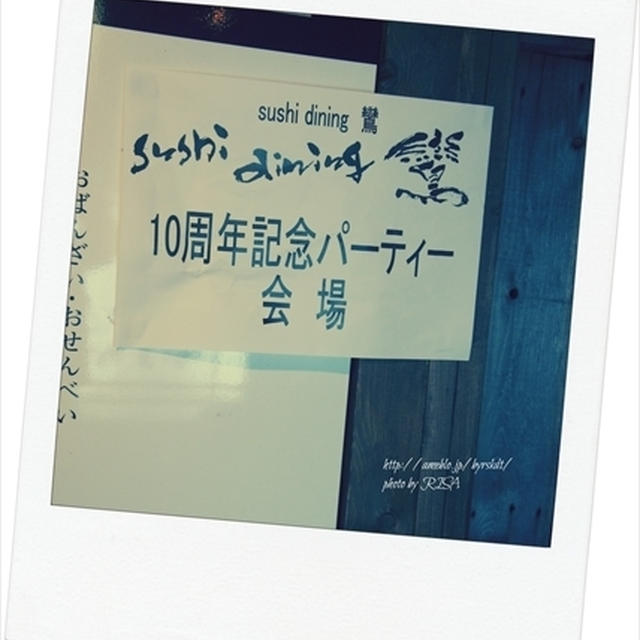 sushi dining 鸞
sushi dining 鸞
10周年記念パーティー
会 場
・おせんべい
http://ameblo.jp/byrskdt/
photo by RISA